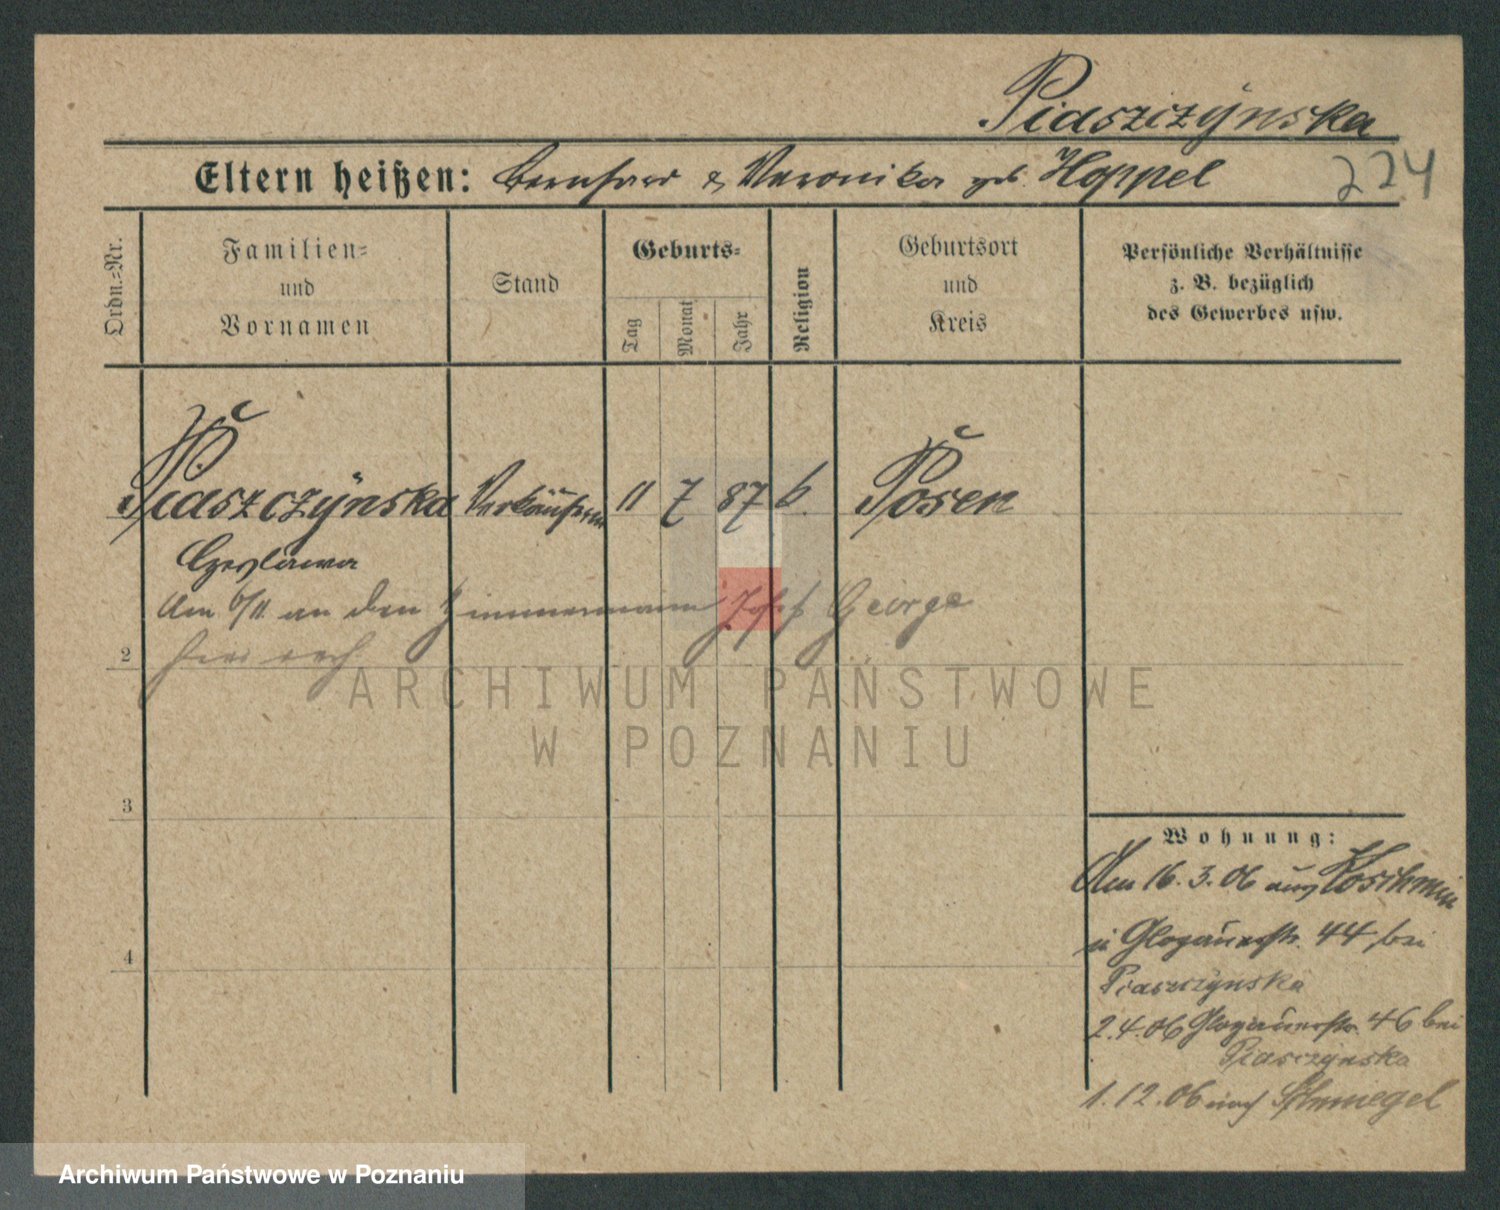 Piaszczÿnska
Eltern heißen: Bernhard & Veronika geb. Hoppel
224
Ordn.=Nr.
Familien=
und
Vornamen
Stand
Geburts=
Tag
Monat
Jahr
Religion
Geburtsort
und
Kreis
Persönliche Verhältnisse
z. B. bezüglich
des Gewerbes usw.
Piaszczÿnska Verkäuferin 11 7 87 k. Posen
Czeslawa
Am 6/11. an den Zimmermann Josef George
2
3
4
Wohnung:
Am 16.3.06 aus Koschmin
Glogauerstr. 44, bei
Piaszczynska
2.4.06 Glogauerstr. 46 bei
Piasczynska
1.12.06 nach Schmiegel
ARCHIWUM PAŃSTWOWE
W POZNANIU
Archiwum Państwowe w Poznaniu